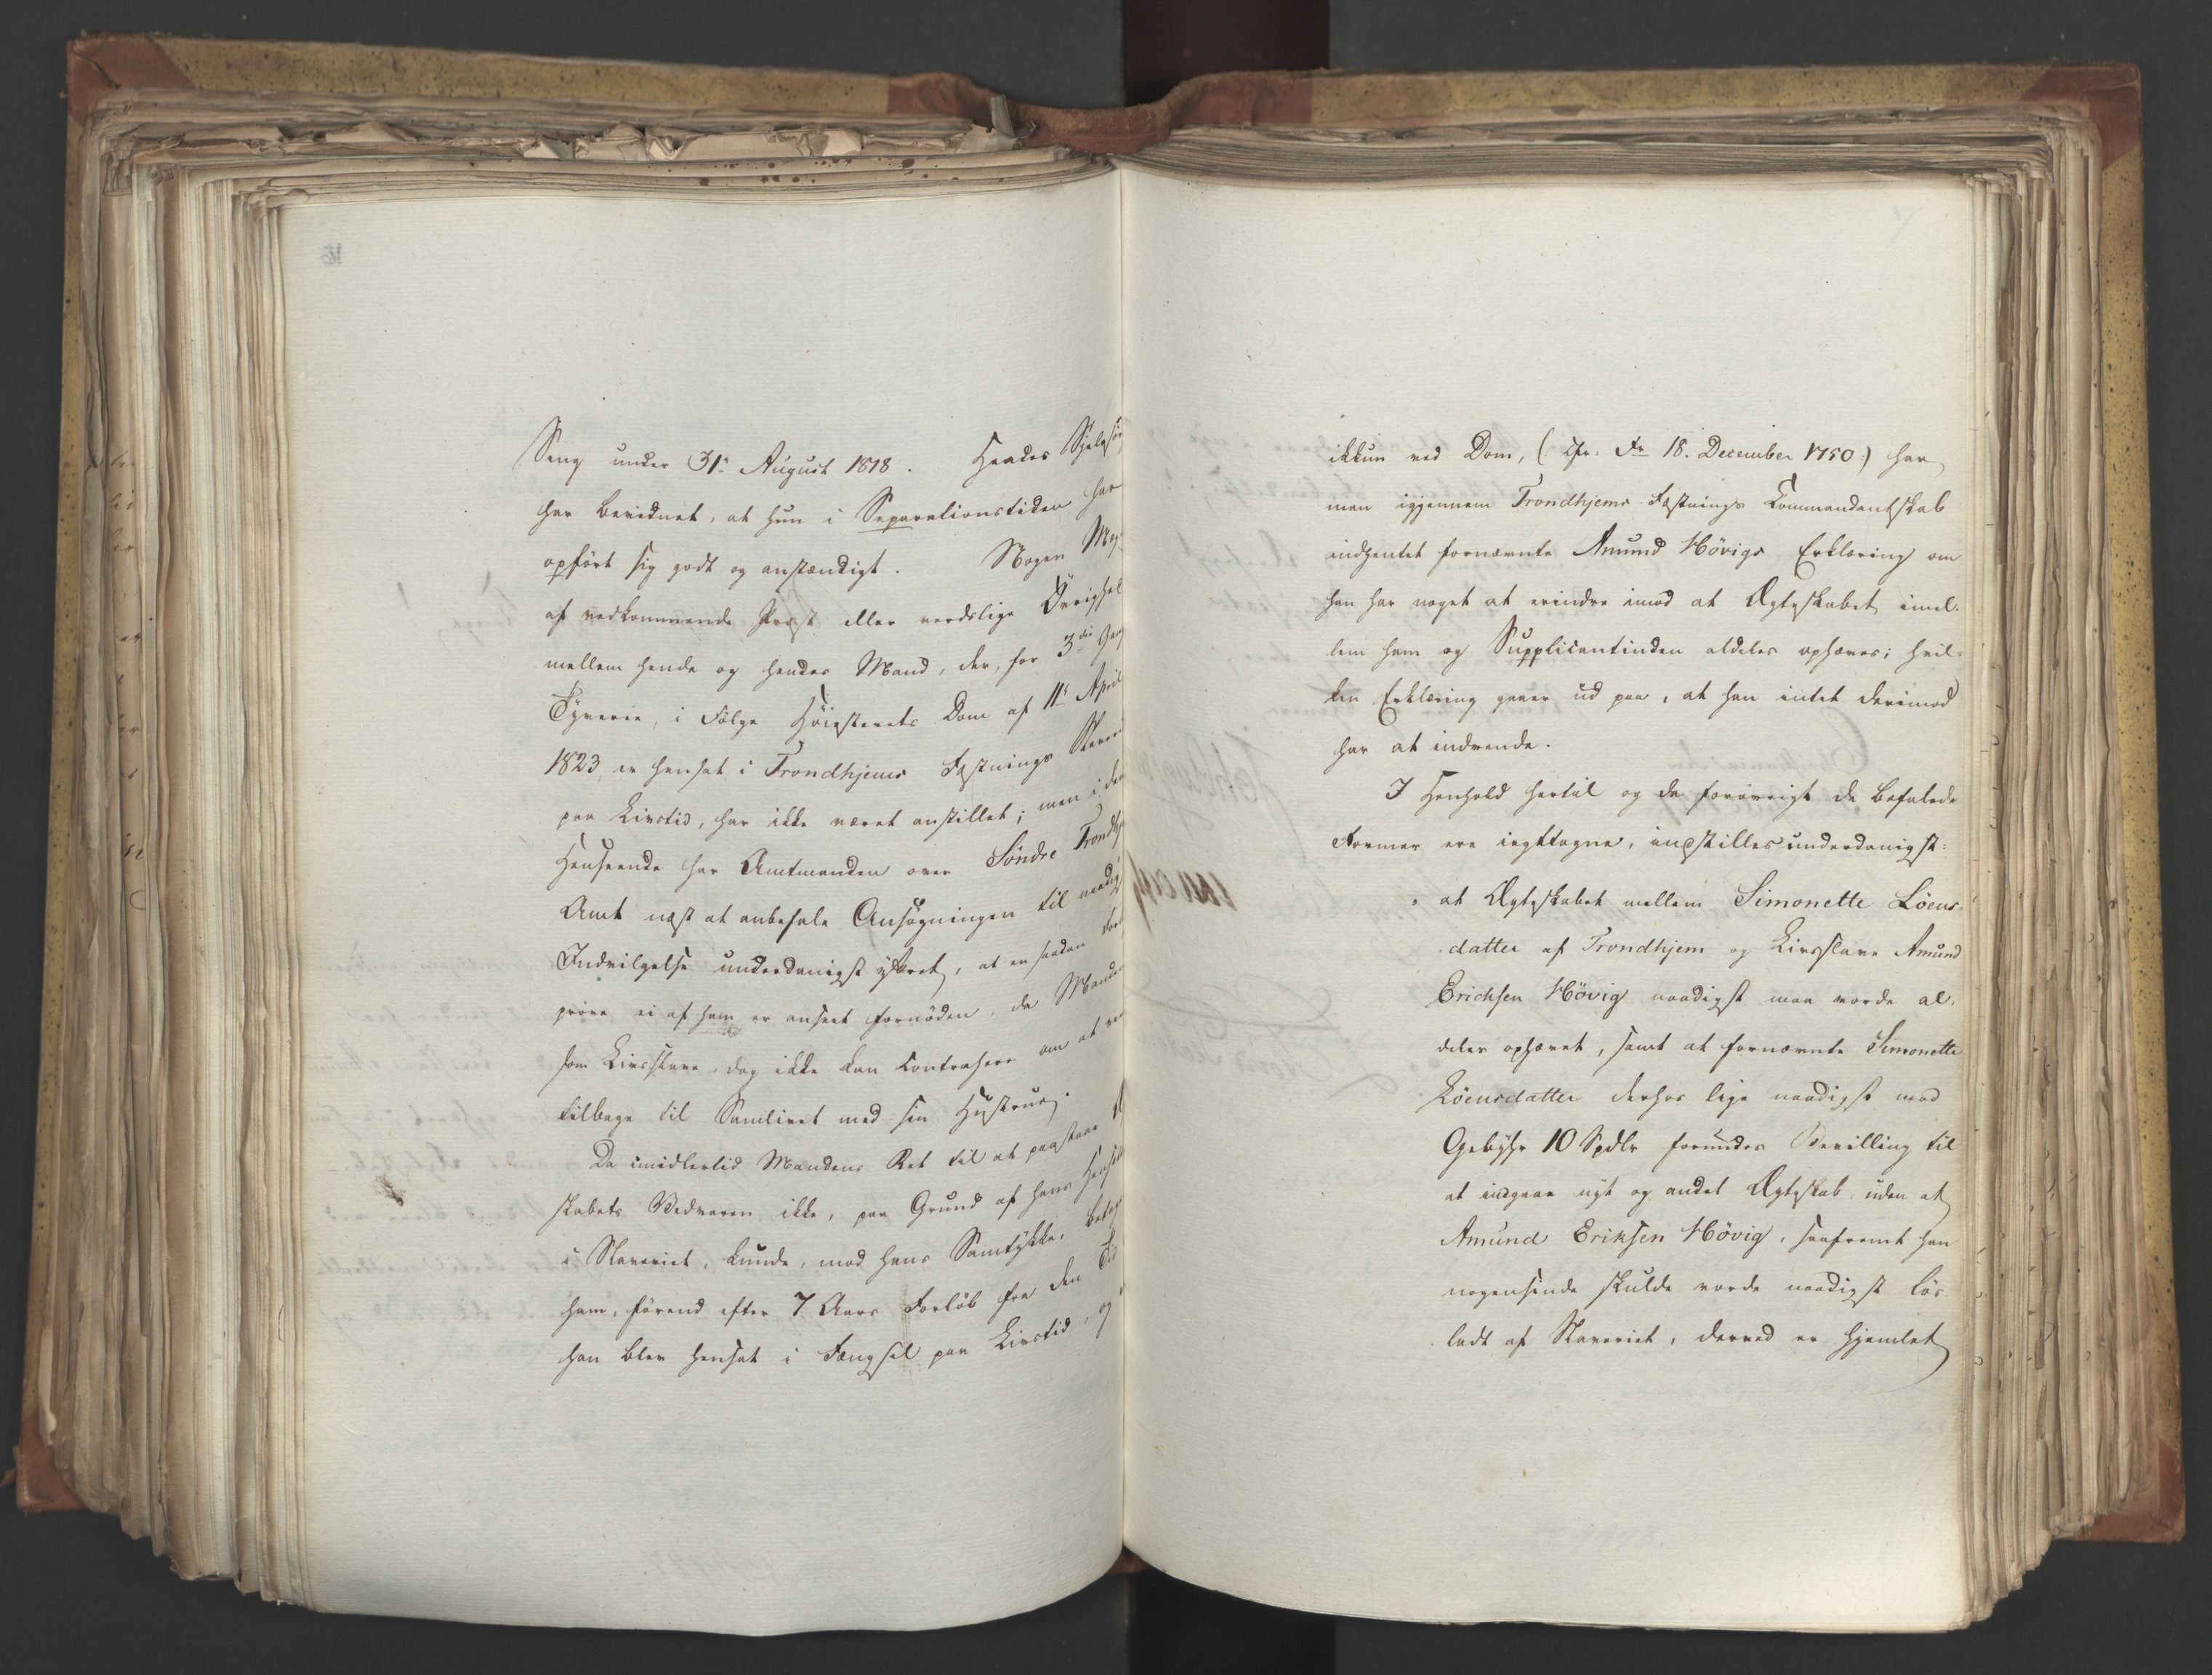 Seng under 31te August 1818. Hendes
har bevidnet, at hun i Separationstiden har
opført sig godt og anstændigt. Nogen
af vedkommende Præst eller verdslige
mellem hende og hendes Mand, der, for 3die Gang
Tyverie, i Følge Høiesterets Dom af 11te April
1823, er hensat i Trondhjems Fæstnings
paa Livstid, har ikke været anstillet; men i den
Henseende har Amtmanden over Søndre
Amt næst at anbefale Ansøgningen til
Indvilgelse underdanigst yttret, at en saadan
prøve ei af ham er anseet fornøden, da Manden
som Livsslave, dog ikke kan contrahere om at
tilbage til Samlivet med sin Hustrue.
Da imidlertid Mandens Ret til at paastaae
skabets Vedvaren ikke, paa Grund af hans
i Slaveriet, kunde, mod hans Samtykke,
ham, førend efter 7 Aars Forløb fra den Tid
han blev hensat i Fængsel paa Livstid, og
ikkun ved Dom, (cfr. Fr 18. December 1750) har
man igjennem Trondhjems Fæstnings Commandantskab
indhentet fornævnte Amund Høvigs Erklæring om
han har noget at erindre imod at Ægteskabet imel-
lem ham og Supplicantinden aldeles ophæves; hvil-
ken Erklæring gaaer ud paa, at han intet derimod
har at indvende.
I Henhold hertil og da forøvrigt de befalede
Former ere iagttagne, indstilles underdanigst:
at Ægteskabet mellem Simonette Löens-
datter af Trondhjem og Livsslave Amund
Erichsen Hövig naadigst maa vorde al-
deles ophævet, samt at fornævnte Simonette
Löensdatter derhos lige naadigst mod
Gebyhr 10 Spdlr forundes Bevilling til
at indgaae nyt og andet Ægteskab uden at
Amund Eriksen Hövig, saafremt han
nogensinde skulde vorde naadigst løs-
ladt af Slaveriet, derved er hjemlet